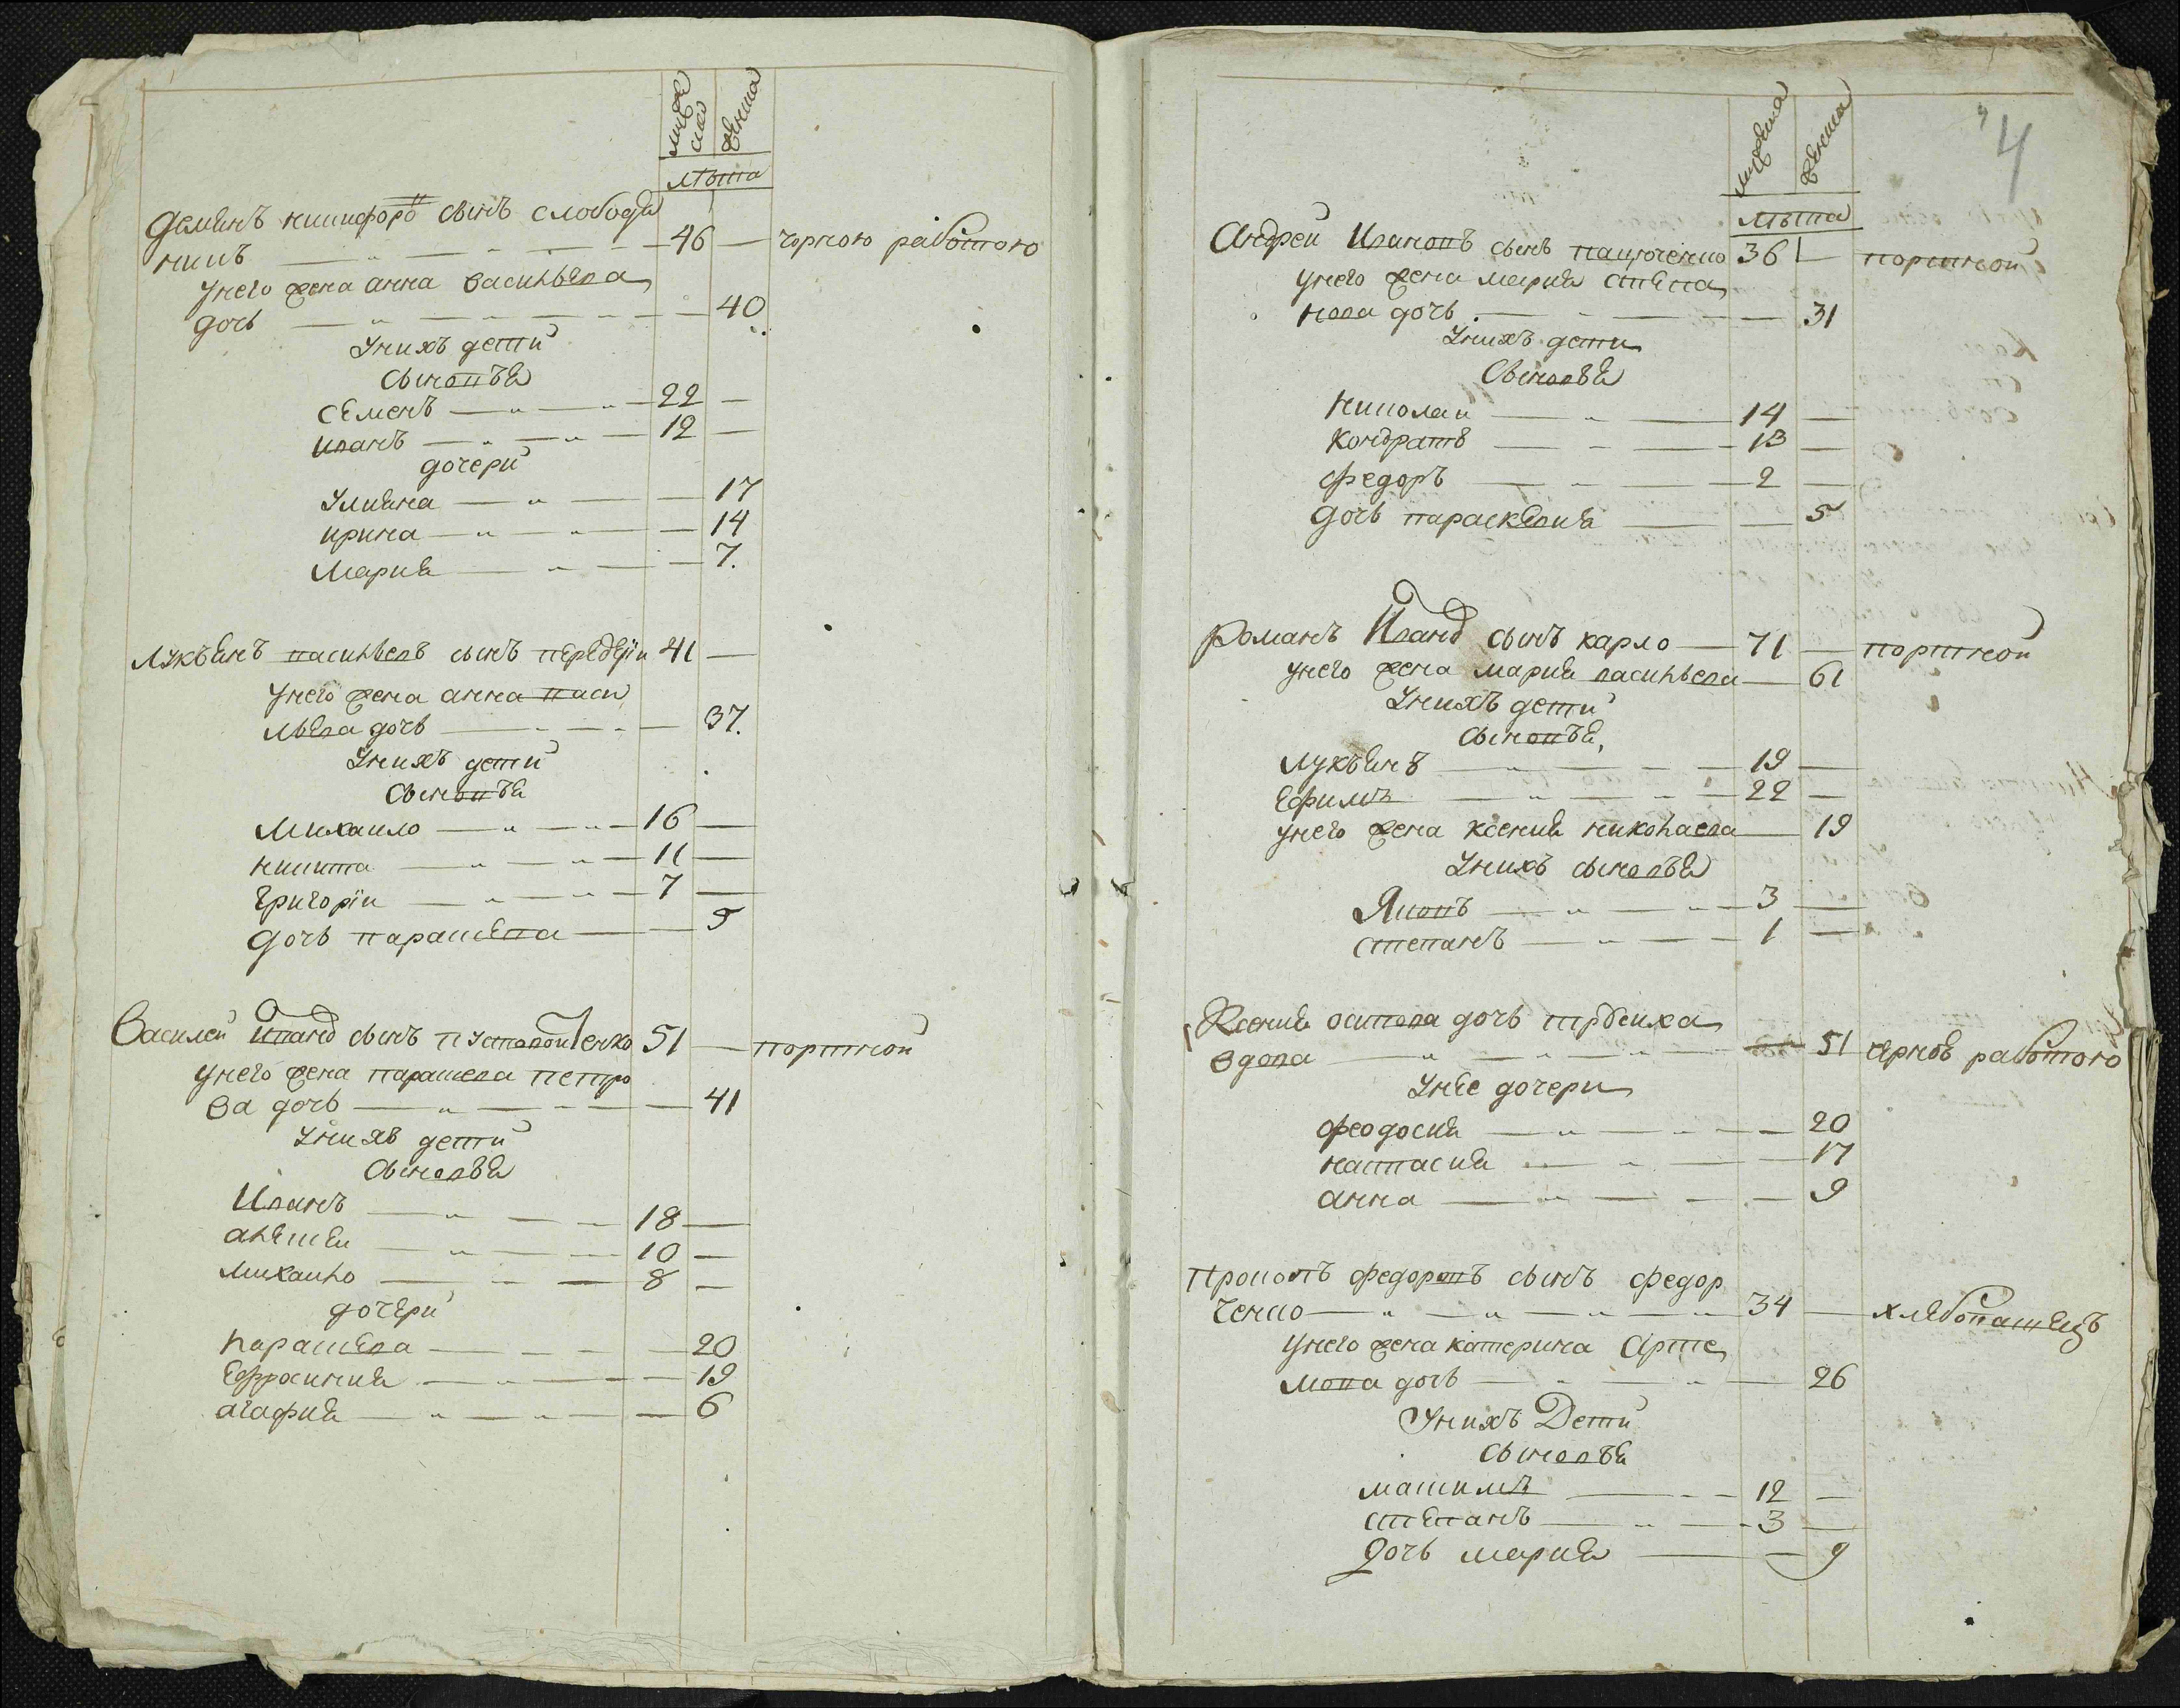 мужеска
женска
лѣта
Демянъ никифоровъ сынъ слободя
никъ 46 чорною работою
унего жена анна васильева
дочь 40
Унихъ дети
Сыновья
Семенъ 22
иванъ 12
дочери
Улияна 17
ирина 14
Мария 7.
Лукьянъ васильевъ сынъ передерiи 41
унего жена анна васи
льева дочь 37.
Унихъ дети
Сыновья
Михаило 16
никита 11
Григорiи 7
дочь параскева 5
Василей Ивановъ сынъ пустовойтенко 51 портной
унего жена параскева петро
ва дочь 41
Унихъ дети
Сыновья
Иванъ 18
алексеи 10
Михаило 8
дочери
Параскева 20
Ефросиния 19
агафия 6
4
мужеска
женска
лѣта
Андреи Ивановъ сынъ пацюченко 36 портной
унего жена мария степа
нова дочь 31
Унихъ дети
Сыновья
николаи 14
Кондратъ 13
Федоръ 2
дочь параскевия 5
Романъ Ивановъ сынъ карло 71 портной
унего жена мария васильева 61
Унихъ дети
Сыновья
лукьянъ 19
Ефимъ 22
унего жена ксения николаева 19
Унихъ сыновья
Яковъ 3
степанъ 1
Ксения осипова дочь
вдова 51 чорною работою
Унее дочери
феодосия 20
настасия 17
анна 9
Прокопъ федоровъ сынъ федор
ченко 34 хлебопашецъ
унего жена катерина Арте
мова дочь 26
Унихъ Дети
Сыновья
максимъ 12
степанъ 3
Дочь мария 9